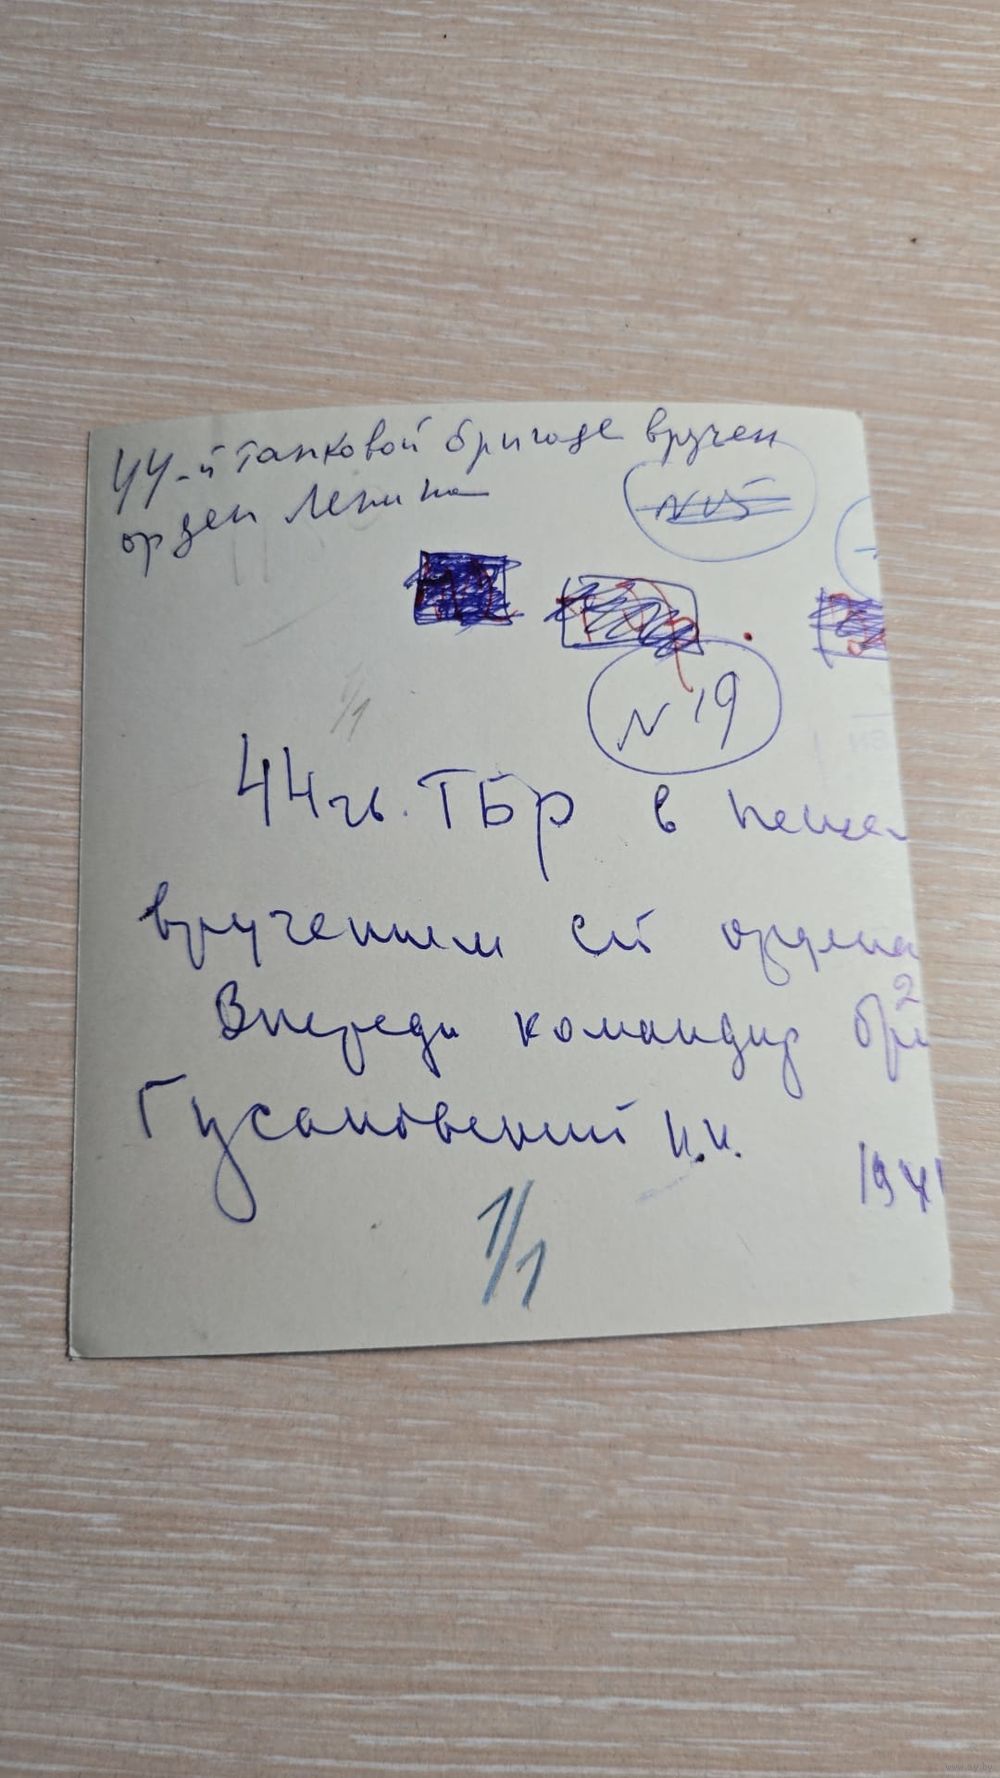 44-й танковой бригаде вручен
орден Ленина
N 15
N 19
1/1
44 гв. ТБр в
вручением ей ордена
2
Впереди командир бри
Гусаковский И.И.
194
1/1
www.ay.by